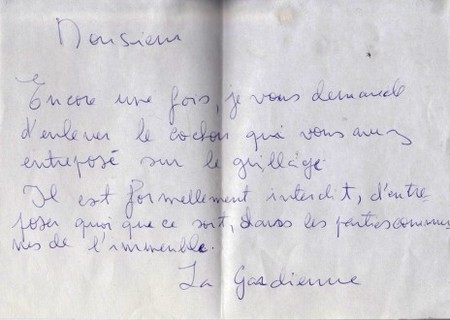 Monsieur
Encore une fois, je vous demande
d'enlever le cochon que vous avez
entreposé sur le grillage.
Il est formellement interdit, d'entre-
poser quoi que ce soit, dans les parties commu
nes de l'immeuble.
La Gardienne